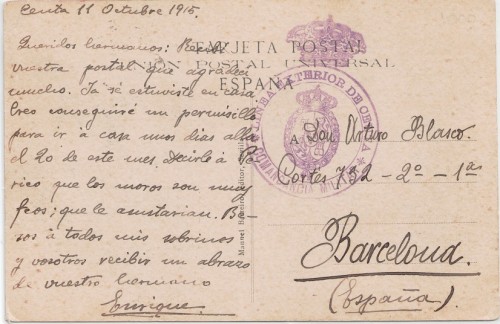 Ceuta 11 Octubre 1915.
Queridos hermanos: Recibí
vuestra postal que agradecí
mucho. Ya sé estuviste en casa
Creo conseguiré un permisillo
para ir á casa unos dias alla
el 20 de este mes Decirlé à Pe-
rico que los moros son muy
feos; que le asustarian. Be-
sos à todos mis sobrinos
y vosotros recibir un abrazo
de vuestro hermano
Enrique.
TARJETA POSTAL
UNION POSTAL UNIVERSAL
ESPAÑA
EXTERIOR DE CEUTA
COMANDANCIA MILITAR
A Don Arturo Blasco.
Cortes 732-2º-1ª
Barcelona.
(España)
Manuel Barreiro, Editor,